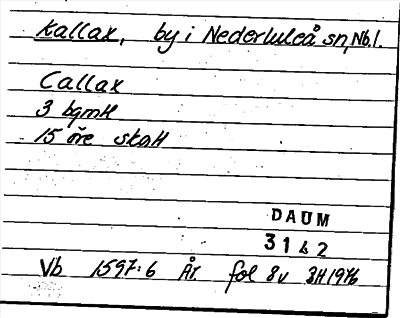 Kallax, by i Nederluleå sn, Nb.l.
Callax
3 bgmH
15 öre skaH
DAUM
3142
Vb 1597:6 År. fol 8v BH1976